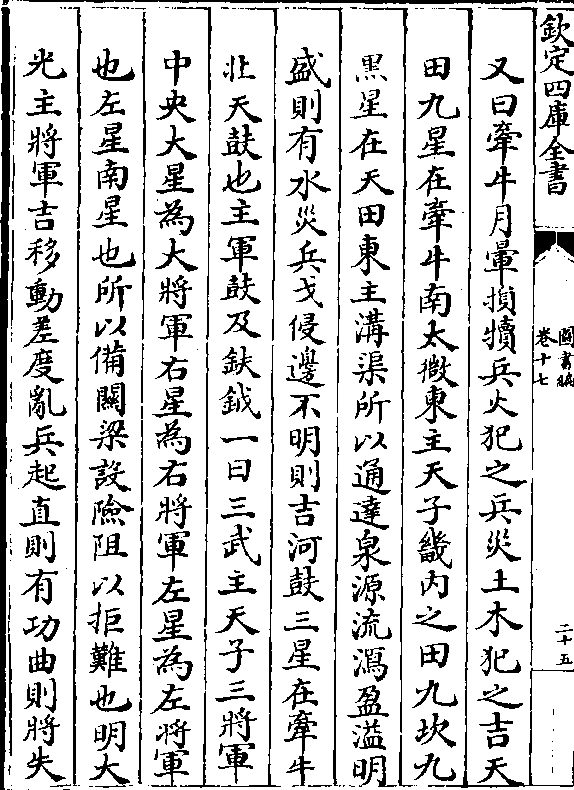 欽定四庫全書
圖書編
卷十七
二十五
又曰牽牛月暈損犢兵火犯之兵災土木犯之吉天
田九星在牽牛南太微東主天子畿内之田九坎九
黑星在天田東主溝渠所以通達泉源流瀉盈溢明
盛則有水災兵戈侵邊不明則吉河鼓三星在牽牛
北天鼓也主軍鼓及鈇鉞一曰三武主天子三將軍
中央大星為大將軍右星為右將軍左星為左將軍
也左星南星也所以備關梁設險阻以拒難也明大
光主將軍吉移動差度亂兵起直則有功曲則將失